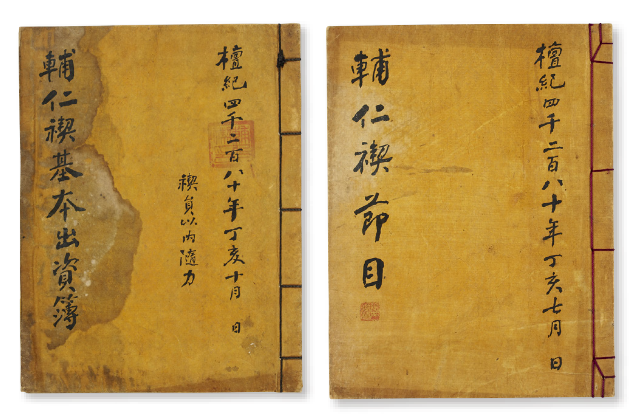 檀紀四千二百八十年丁亥十月 日
禊員以內隨力
輔仁禊基本出資簿
檀紀四千二百八十年丁亥七月 日
輔仁禊節目